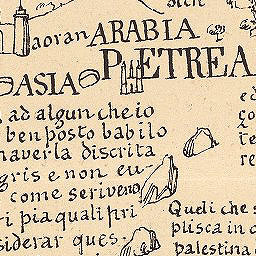 aoran ARABIA
PETREA
ASIA
ad algun cheio
ben posto babilo
haverla discrita
gris e non eu-
come seriveno
ri pia quali pri
siderar ques-
Queli che s
plisca in c
palestina